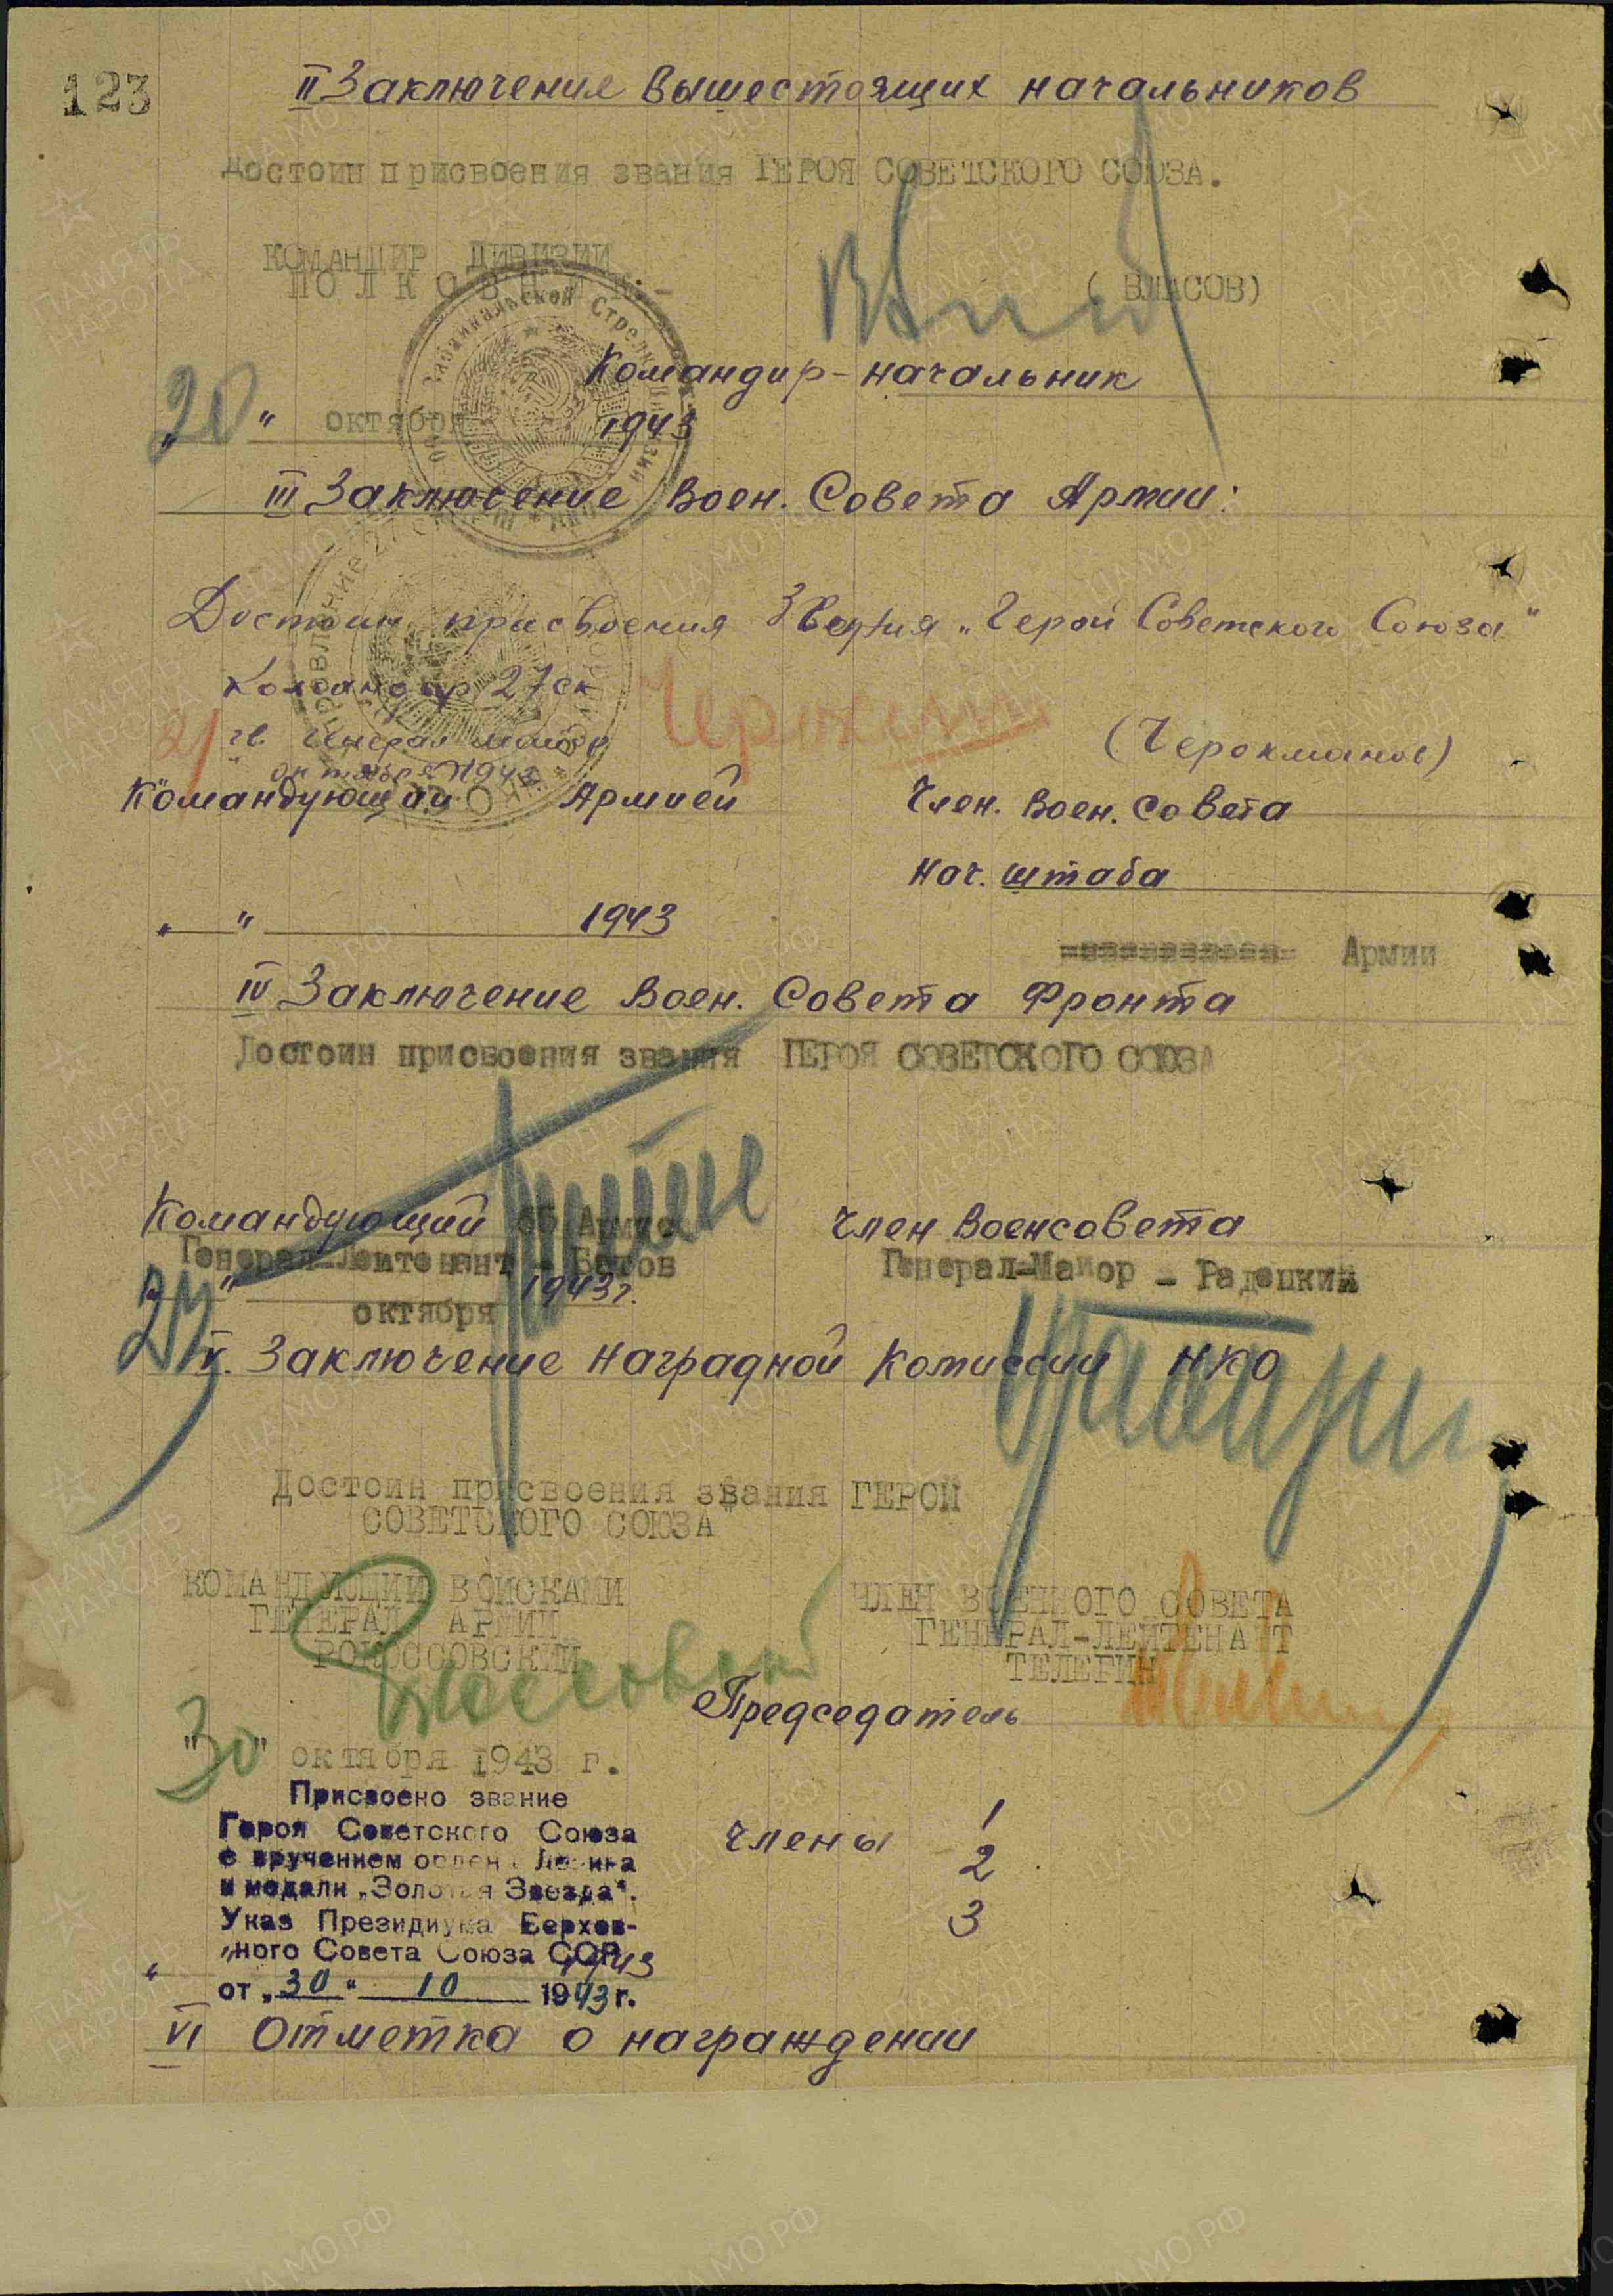 123
II Заключение вышестоящих начальников
Достоин присвоения звания ГЕРОЯ СОВЕТСКОГО СОЮЗА.
КОМАНДИР ДИВИЗИИ
ПОЛКОВНИК:-
(ВЛАСОВ)
Командир-начальник
"20" октября 1943
III Заключение Воен. Совета Армии:
Достоин присвоения Звания „Герой Советского Союза"
Командир 27 ск
гв. генерал майор
(Черокманов)
21 октября 1943
Командующий Армией
Член. Воен. Совета
Нач. штаба
" " 1943
Армии
IV Заключение Воен. Совета Фронта
Достоин присвоения звания ГЕРОЯ СОВЕТСКОГО СОЮЗА
Командующий 65 Армией
Член Военсовета
Генерал-Лейтенант - Батов
Генерал-Майор - Радецкий
" октября 1943г.
V. Заключение Наградной Комиссии НКО
Достоин присвоения звания ГЕРОЙ
СОВЕТСКОГО СОЮЗА"
КОМАНДУЮЩИЙ ВОЙСКАМИ
ГЕНЕРАЛ АРМИИ
РОКОССОВСКИЙ
ЧЛЕН ВОЕННОГО СОВЕТА
ГЕНЕРАЛ-ЛЕЙТЕНАНТ
ТЕЛЕГИН
Председатель
"30" октября 1943 г.
Присвоено звание
Героя Советского Союза
с вручением ордена Ленина
и медали „Золотая Звезда".
Указ Президиума Верхов-
ного Совета Союза ССР
1943
от „30" 10 1943 г.
Члены 1
2
3
VI Отметка о награждении